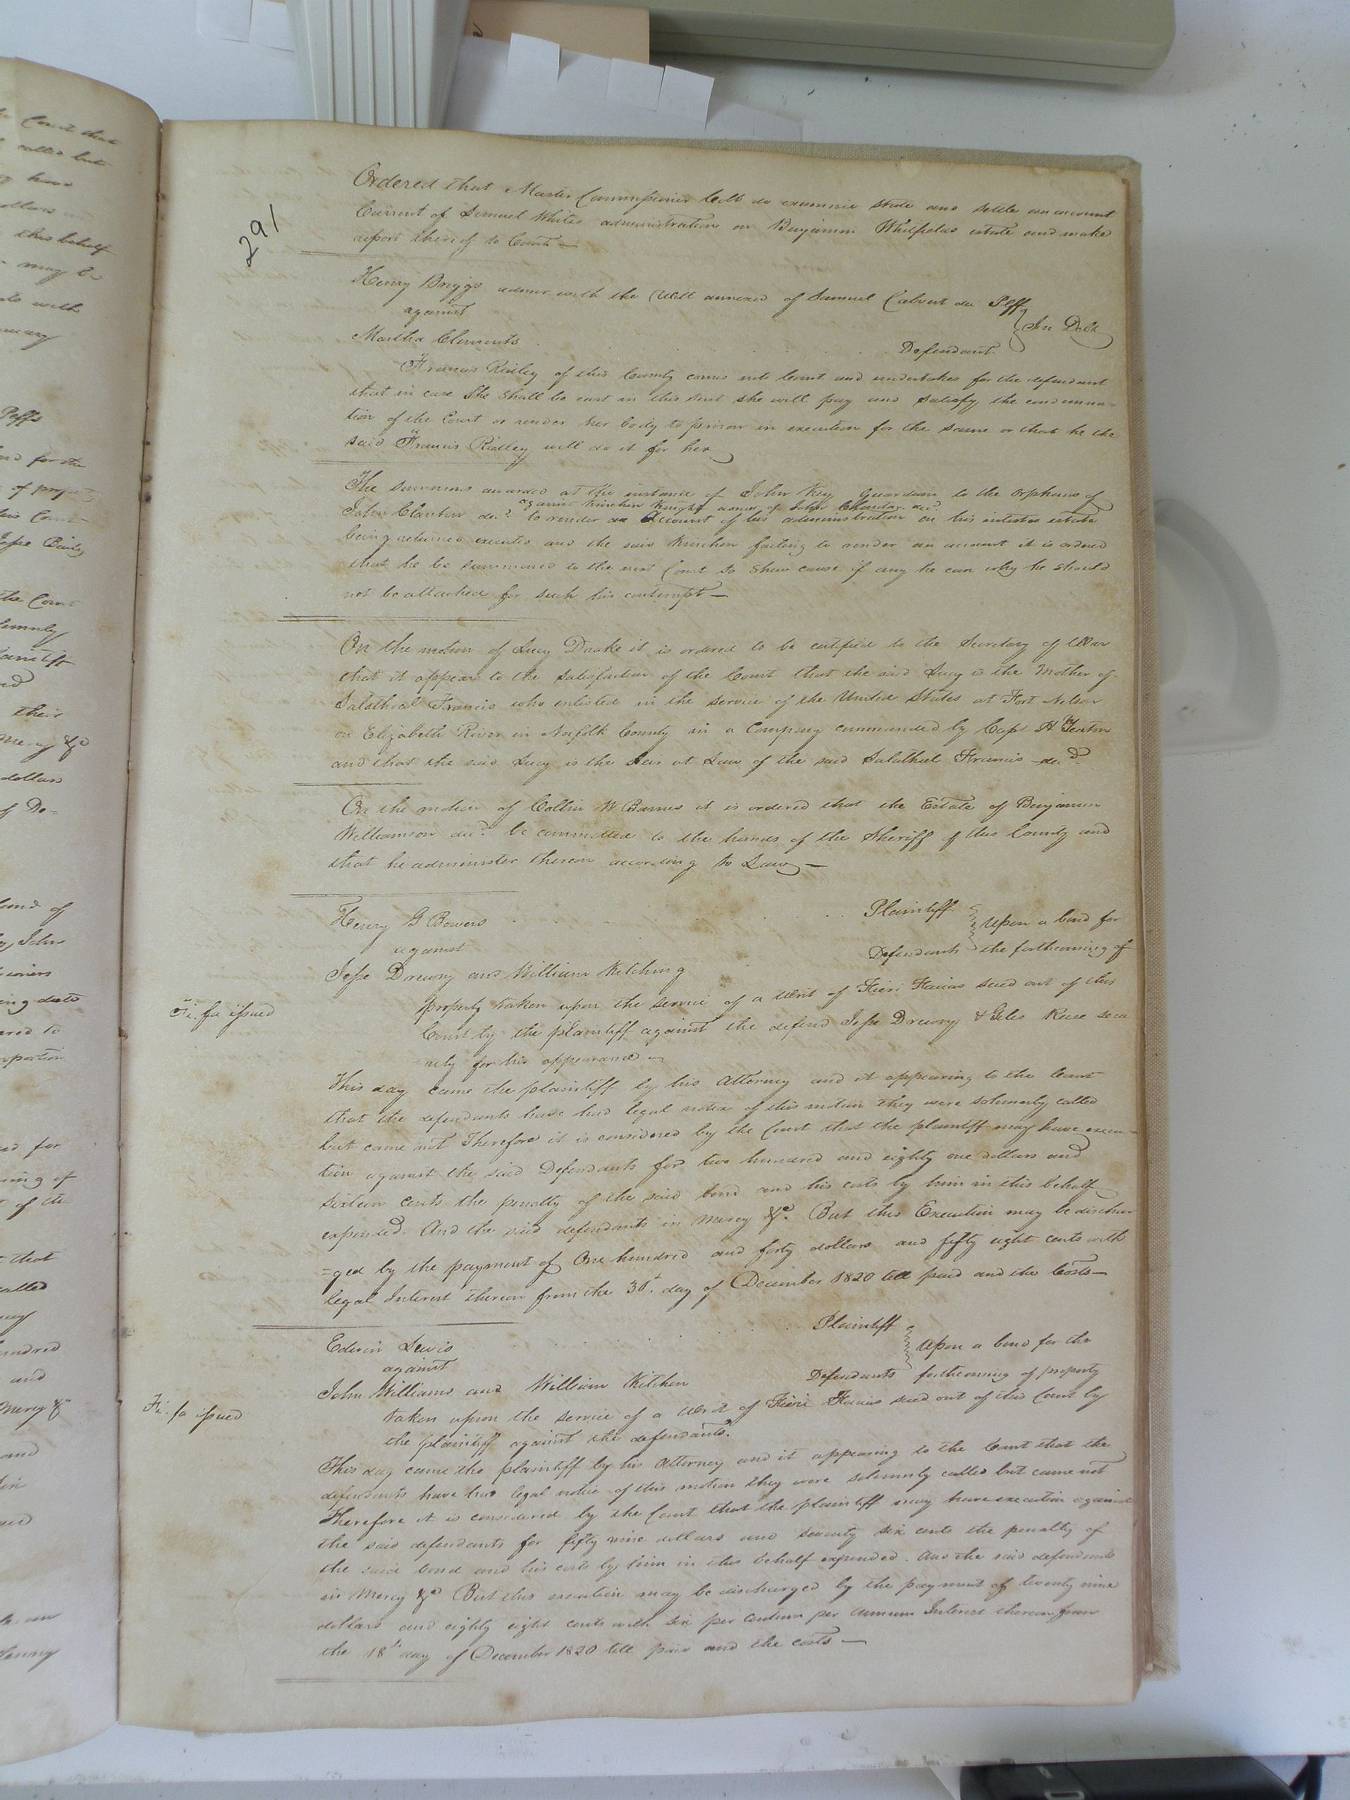 291
Ordered that Master Commissioner Cobb do examine state and settle an account
Current of Samuel Whites administration on Benjamin Whitfields estate and make
report thereof to Court
Henry Briggs admr with the Will annexed of Samuel Calvert dec Plff
against
In Debt
Martha Clements Defendant
Francis Ridley of this County comes into Court and undertakes for the defendant
that in case She Shall be cast in this suit she will pay and satisfy the condemna-
tion of the Court or render her body to prison in execution for the same or that he the
said Francis Ridley will do it for her
The summons awarded at the instance of John Key Guardian to the Orphans of
against Kinchen Knight admr of John Clanton decd
John Clanton decd to render an Account of his administration on his intestes estate
being returned executed and the said Kinchen failing to render an account it is ordered
that he be summoned to the next Court to Shew cause if any he can why he should
not be attached for such his contempt
On the motion of Lucy Drake it is ordered to be certified to the Secretary of War
that it appear to the satisfaction of the Court that the said Lucy is the Mother of
Salathiel Francis who enlisted in the service of the United States at Fort Nelson
on Elizabeth River in Norfolk County in a Company commanded by Capt H
and that the said Lucy is the heir at Law of the said Salathiel Francis decd
On the motion of Collin W Barnes it is ordered that the Estate of Benjamin
Williamson decd be committed to the hands of the Sheriff of this County and
that he administer thereon according to Law
Henry G Bowers Plaintiff
against
Upon a bond for
Jesse Drewry and William Kitching Defendants the forthcoming of
Fi. fa issued
property taken upon the service of a Writ of Fieri Facias sued out of this
Court by the plaintiff against the defend Jesse Drewry & Giles Reese secu
-rity for his appearance
This day came the plaintiff by his Attorney and it appearing to the Court
that the defendants have had legal notice of this motion they were solemnly called
but came not Therefore it is considered by the Court that the plaintiff may have execu-
tion against the said Defendants for two hundred and eighty one dollars and
sixteen cents the penalty of the said bond and his costs by him in this behalf
expended. And the said defendants in Mercy &c. But this Execution may be dischar
=ged by the payment of One hundred and forty dollars and fifty eight cents with
legal Interest thereon from the 30t. day of December 1820 till paid and the Costs
Edwin Lewis Plaintiff
against
Upon a bond for the
John Williams and William Kitchen Defendants forthcoming of property
Fi: fa issued
taken upon the service of a Writ of Fieri Facias sued out of this Court by
the plaintiff against the defendants.
This day came the plaintiff by his Attorney and it appearing to the Court that the
defendants have had legal notice of this motion they were solemnly called but came not
Therefore it is considered by the Court that the plaintiff may have execution against
the said defendants for fifty nine dollars and seventy six cents the penalty of
the said bond and his costs by him in this behalf expended. And the said defendants
in Mercy &c But this execution may be discharged by the payment of twenty nine
dollars and eighty eight cents with six per centum per annum Interest thereon from
the 18th day of December 1820 till paid and the costs